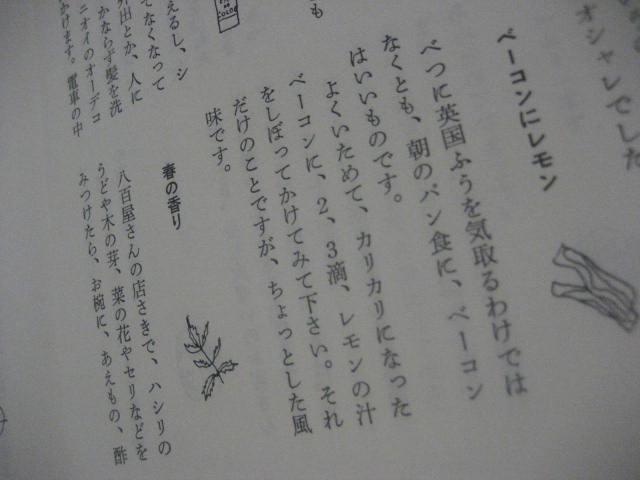 オシャレでした
ベーコンにレモン
べつに英国ふうを気取るわけでは
なくとも、朝のパン食に、ベーコン
はいいものです。
よくいためて、カリカリになった
ベーコンに、2、3滴、レモンの汁
をしぼってかけてみて下さい。それ
だけのことですが、ちょっとした風
味です。
春の香り
八百屋さんの店さきで、ハシリの
うどや木の芽、菜の花やセリなどを
みつけたら、お椀に、あえもの、酢
も
えるし、シ
てなくなって
外出とか、人に
かならず髪を洗
ニオイのオーデコ
かけます。電車の中